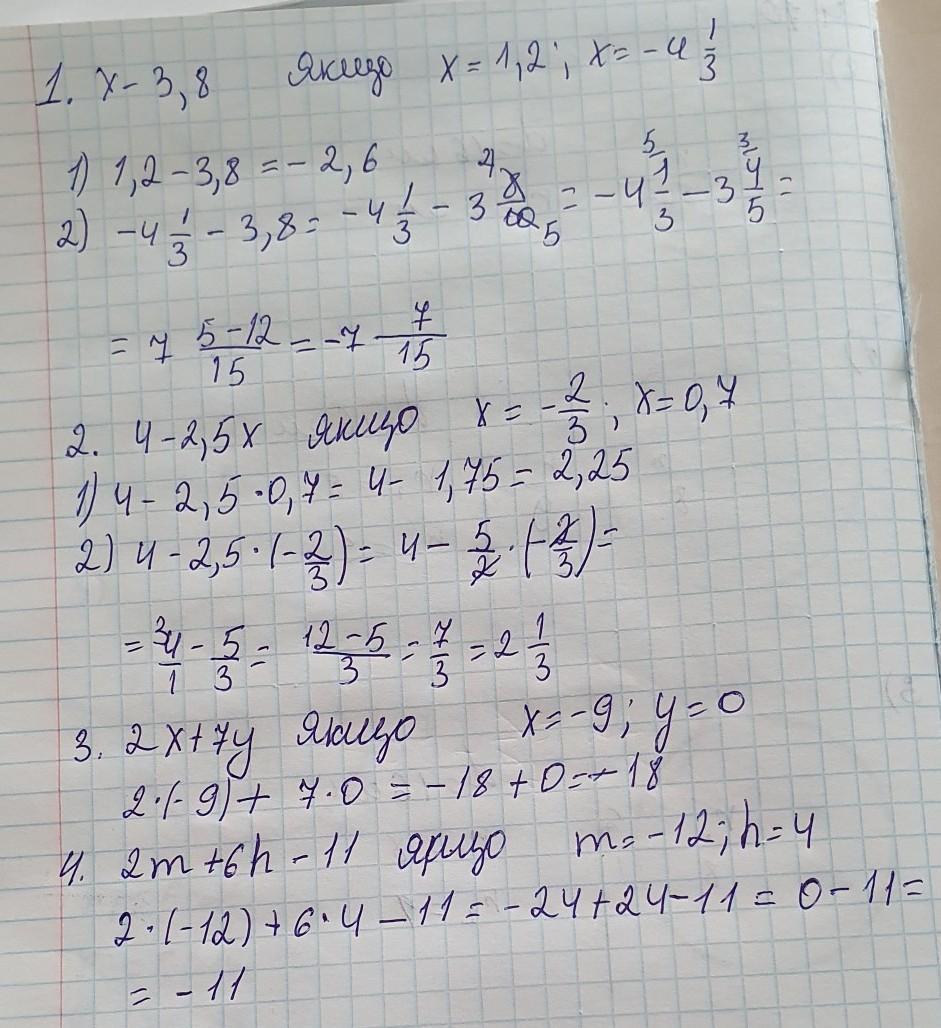 1. x - 3,8 якщо x = 1,2; x = -4 1/3
1) 1,2 - 3,8 = -2,6
2) -4 1/3 - 3,8 = -4 1/3 - 3 8/10 = -4 1/3 - 3 4/5 =
= 7 (5-12)/15 = -7 7/15
2. 4 - 2,5x якщо x = -2/3; x = 0,7
1) 4 - 2,5 · 0,7 = 4 - 1,75 = 2,25
2) 4 - 2,5 · (-2/3) = 4 - 5/2 · (-2/3) =
= 4/1 - 5/3 = (12-5)/3 = 7/3 = 2 1/3
3. 2x + 7y якщо x = -9; y = 0
2·(-9) + 7·0 = -18 + 0 = -18
4. 2m + 6h - 11 якщо m = -12; h = 4
2·(-12) + 6·4 - 11 = -24 + 24 - 11 = 0 - 11 =
= -11